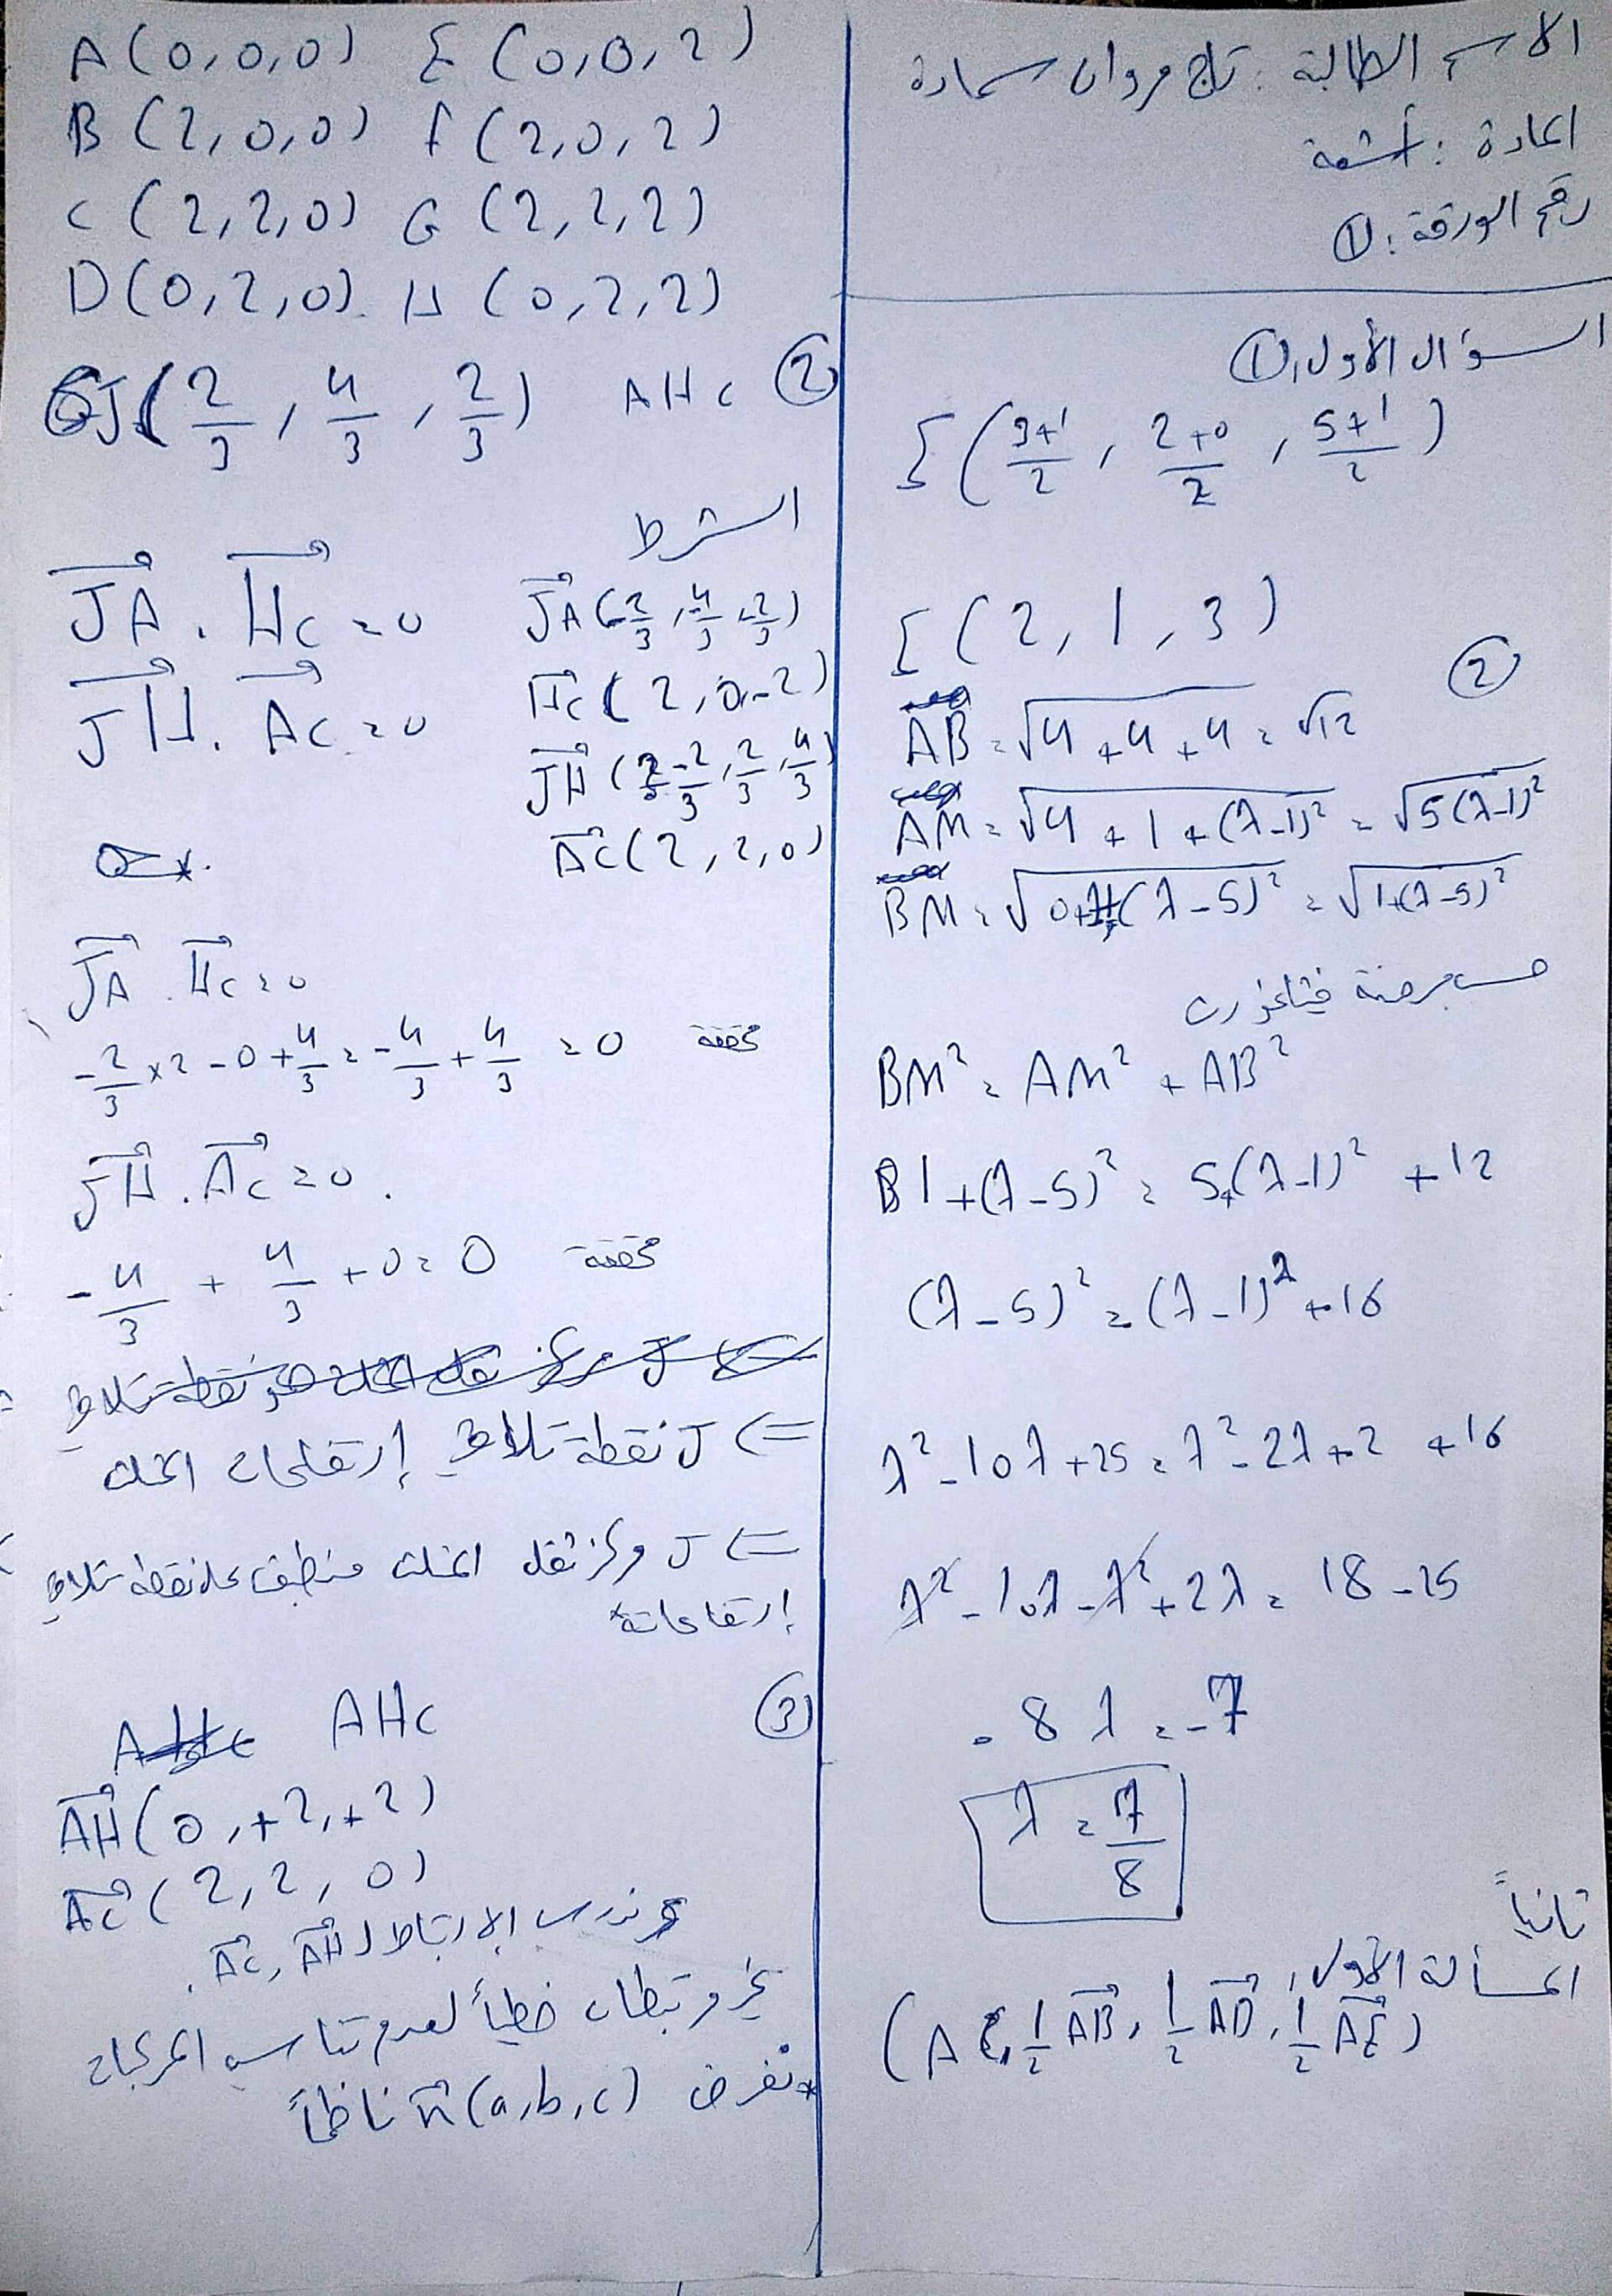 الاسم الطالبة : تاج مروان سمارة
المادة : أشعة
رقم الورقة : ①
السؤال الأول: ①
E ( 3+1/2 , 2+0/2 , 5+1/2 )
E ( 2 , 1 , 3 )
②
AB = √4 + 4 + 4 = √12
AM = √4 + 1 + (λ-1)² = √5(λ-1)²
BM = √0+1+(λ-5)² = √1+(λ-5)²
حسب مبرهنة فيثاغورث
BM² = AM² + AB²
B 1 + (λ-5)² = 5+(λ-1)² + 12
(λ-5)² = (λ-1)² + 16
λ² - 10λ + 25 = λ² - 2λ + 2 + 16
λ² - 10λ - λ² + 2λ = 18 - 25
- 8λ = -7
λ = 7/8
ثانياً
المسألة الأولى:
(A, 1/2 AB, 1/2 AD, 1/2 AE)
A (0,0,0) E (0,0,2)
B (2,0,0) F (2,0,2)
C (2,2,0) G (2,2,2)
D (0,2,0) H (0,2,2)
② AHC J( 2/3 , 4/3 , 2/3 )
الشرط
JA . HC = 0 JA (-2/3 , -4/3 , -2/3)
HC ( 2 , 0 , -2)
JH . AC = 0 JH ( -2/3 , 2/3 , 4/3 )
AC (2 , 2 , 0)
JA . HC = 0
-2/3 × 2 - 0 + 4/3 = -4/3 + 4/3 = 0 محققة
JH . AC = 0 .
-4/3 + 4/3 + 0 = 0 محققة
J مركز ثقل المثلث هو نقطة تلاقي
<= J نقطة تلاقي إرتفاعات المثلث
<= J مركز ثقل المثلث منطبق على نقطة تلاقي
إرتفاعاته
③ AHC AHC
AH (0 , +2 , +2)
AC ( 2 , 2 , 0)
ندرس الإرتباط لـ AH , AC .
غير مرتبطان خطياً لعدم تناسب المركبات
* نفرض n (a,b,c) ناظماً